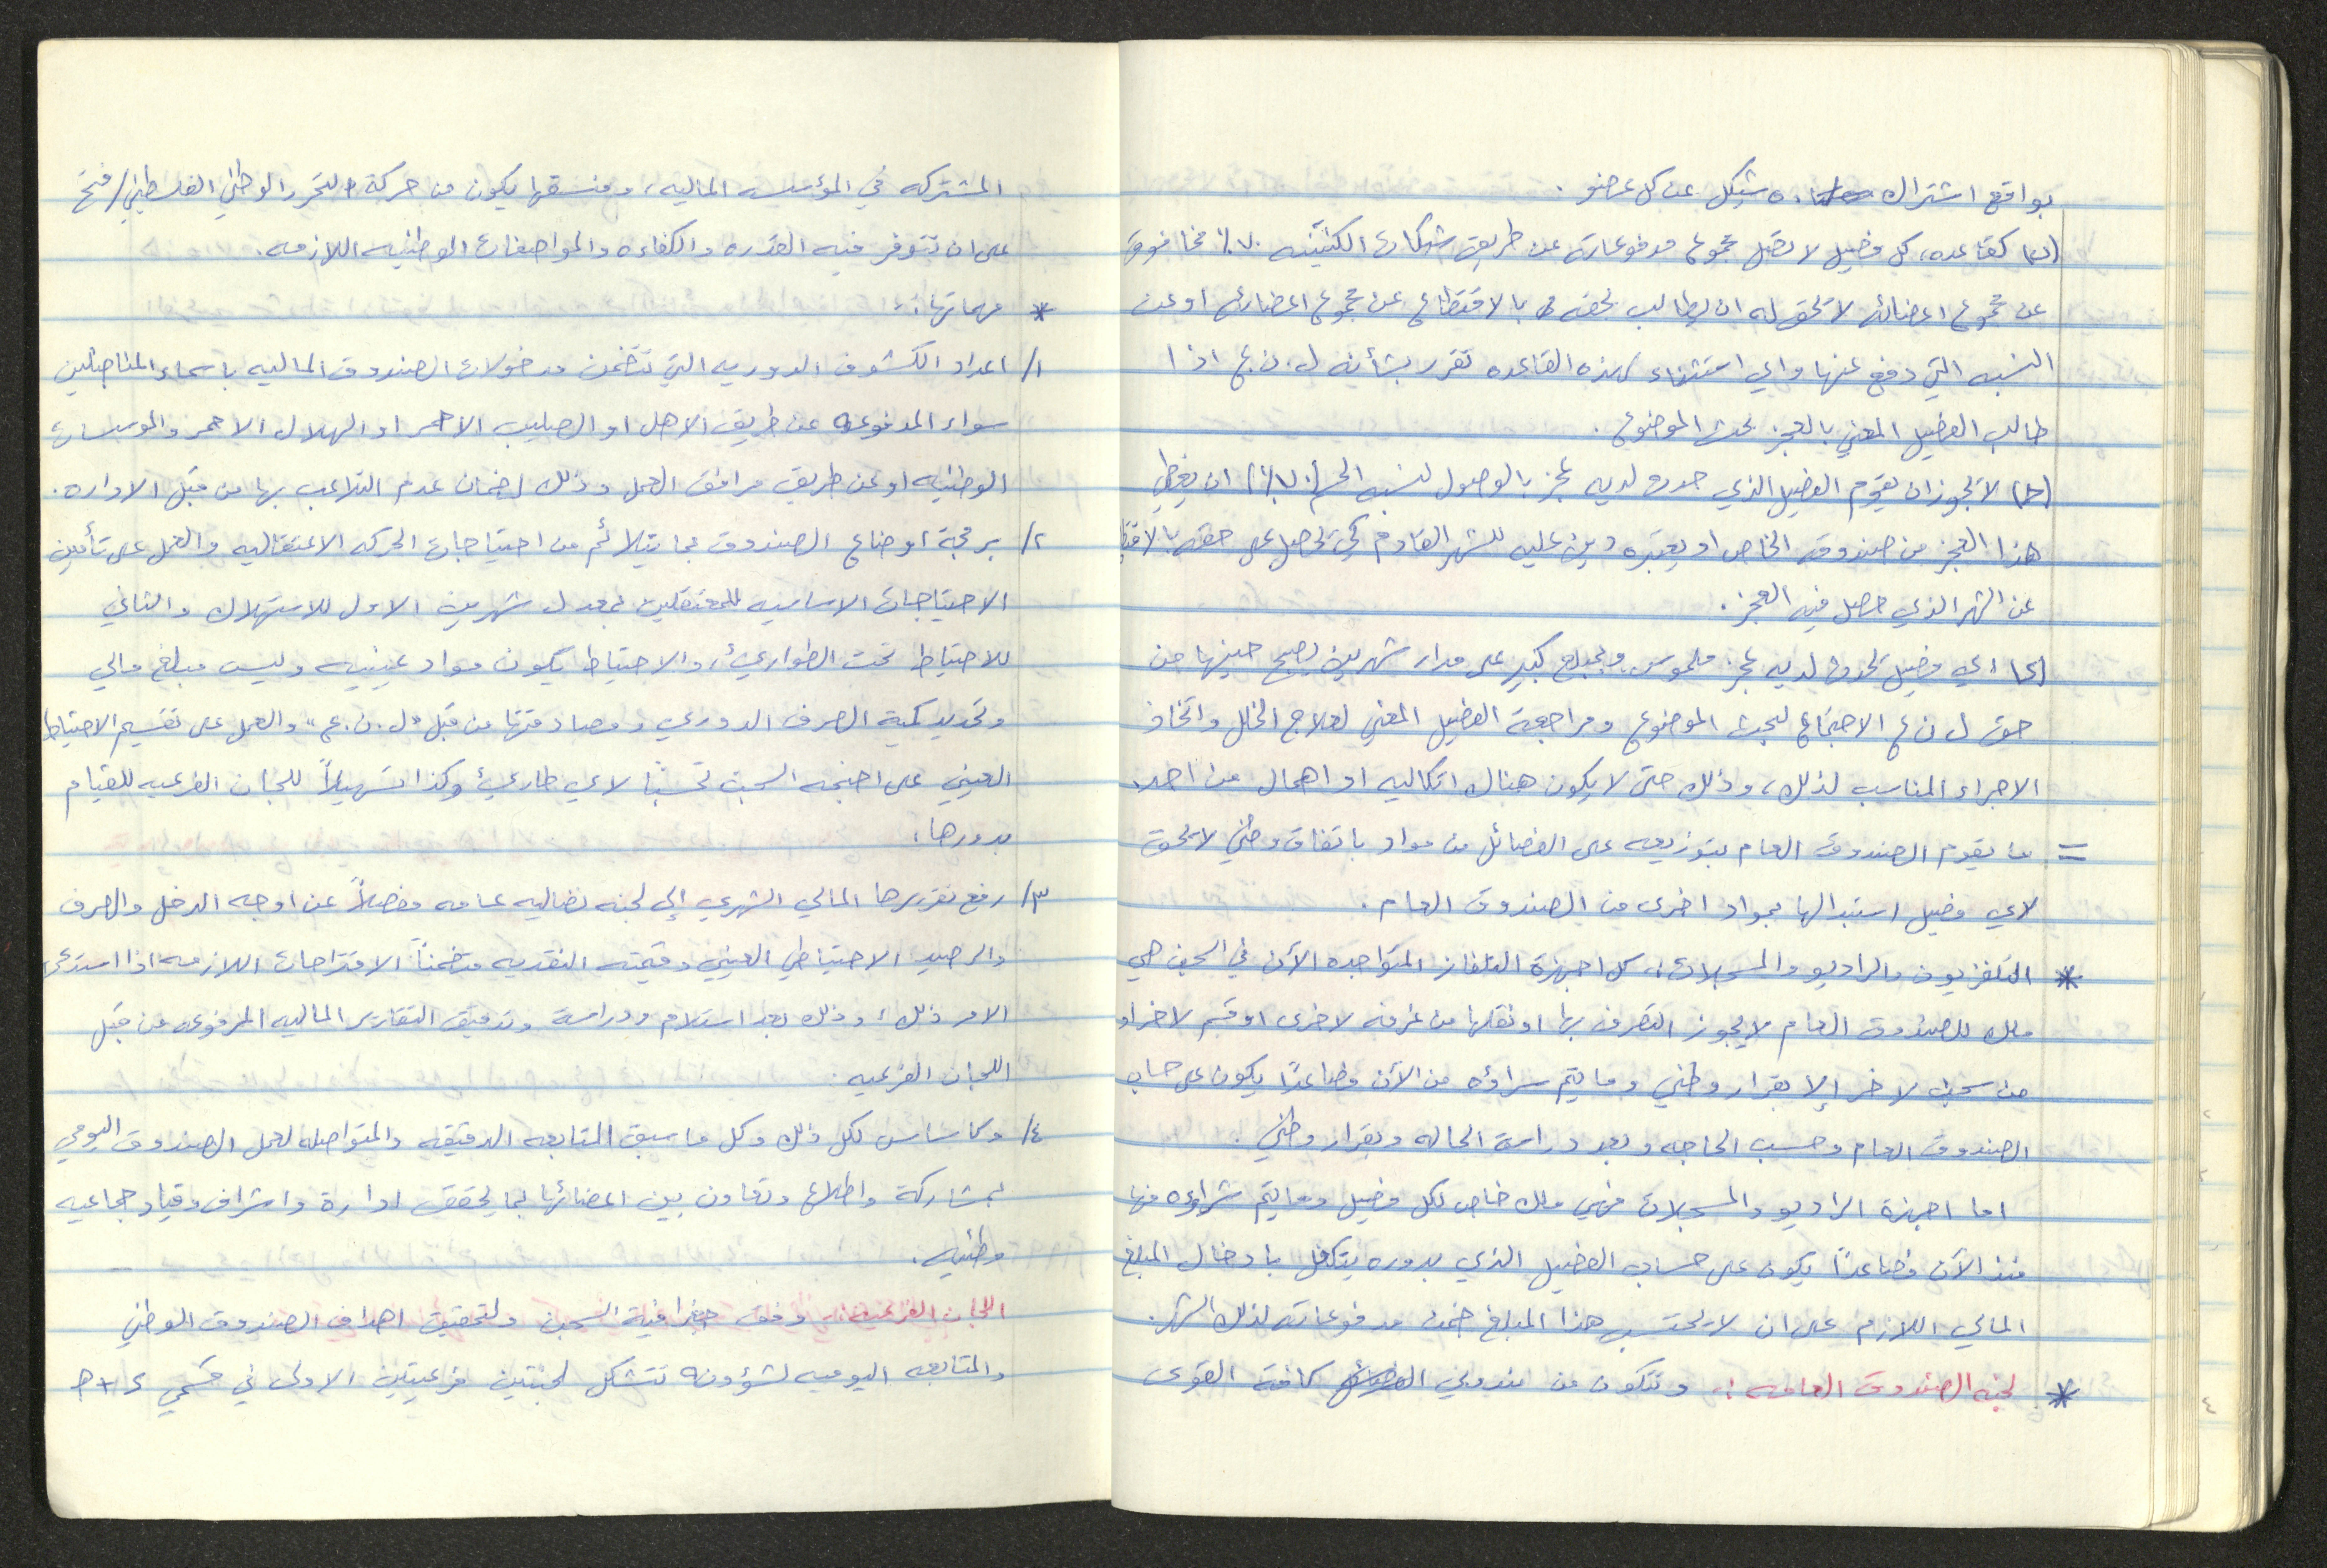 بواقع اشتراك ٥٠ شيكل عن كل عضو .
كقاعده، كل فصيل لا تصل مجموع مدفوعاته عن طريق شيكات الكنتينه ٧٠٪ فما فوق
عن مجموع اعضائه لا يحق له ان يطالب بحقه بالاقتطاع عن مجموع اعضائه او عن
النسبه التي دفع عنها واي استثناء لهذه القاعده تقرر بشأنه ل.ن.ع اذا
طالب الفصيل المعني بالعجز بحث الموضوع .
لا يجوز ان يقوم الفصيل الذي حدث لديه عجز بالوصول لنسبه الـ (٧٠٪) ان يغطي
هذا العجز من صندوقه الخاص او يعتبره دين عليه للشهر القادم كي يحصل على حقه بالاقتطاع
عن الشهر الذي حصل فيه العجز .
اي فصيل يحدث لديه عجز ملموس وبمبلغ كبير على مدار شهرين يصبح حينها من
حق ل ن ع الاجتماع لبحث الموضوع ومراجعة الفصيل المعني لعلاج الخلل واتخاذ
الاجراء المناسب لذلك، وذلك حتى لا يكون هناك اتكاليه او اهمال من احد
= ما يقوم الصندوق العام بتوزيعه على الفصائل من مواد باتفاق وطني لا يحق
لاي فصيل استبدالها بمواد اخرى من الصندوق العام .
* التلفزيون والراديو والمسجلات :. كل اجهزة التلفاز المتواجده الآن في السجن هي
ملك للصندوق العام لا يجوز التصرف بها او نقلها من غرفه لاخرى او قسم لاخر او
من سجن لاخر إلا بقرار وطني وما يتم شراؤه من الآن فصاعدًا يكون على حساب
الصندوق العام وحسب الحاجه وبعد دراسة الحاله وبقرار وطني .
اما اجهزة الراديو والمسجلات فهي ملك خاص لكل فصيل وما يتم شراؤه منها
منذ الآن فصاعدًا يكون على حساب الفصيل الذي بدوره يتكفل بادخال المبلغ
المالي اللازم على ان لا يحتسب هذا المبلغ ضمن مدفوعاته لذلك الشهر .
* لجنه الصندوق العامه :. وتتكون من مندوبي كافة القوى
المشتركه في المؤسسه الماليه، ومنسقها يكون من حركة التحرر الوطني الفلسطيني/فتح
على ان تتوفر فيه القدره والكفاءه والمواصفات الوطنيه اللازمه .
* مهماتها :.
١/ اعداد الكشوف الدوريه التي تتضمن مدخولات الصندوق الماليه باسماء المناضلين
سواء المدفوعه عن طريق الاهل او الصليب الاحمر او الهلال الاحمر والمؤسسات
الوطنيه او عن طريق مرافق العمل وذلك لضمان عدم التلاعب بها من قبل الاداره .
٢/ برمجة اوضاع الصندوق بما يتلائم من احتياجات الحركه الاعتقاليه والعمل على تأمين
الاحتياجات الاساسيه للمعتقلين بمعدل شهرين الاول للاستهلاك والثاني
للاحتياط تحت الطوارئ، والاحتياط يكون مواد عينيه وليس مبلغ مالي
وتحديد كمية الصرف الدوري ومصادقتها من قبل "ل.ن.ع" والعمل على تقسيم الاحتياط
العيني على اجنحه السجن تحسبًا لاي طارئ وكذا تسهيلاً للجان الفرعيه للقيام
بدورها،
٣/ رفع تقريرها المالي الشهري إلى لجنه نضاليه عامه مفصلاً عن اوجه الدخل والصرف
والرصيد الاحتياطي العيني وقيمته النقديه متضمنًا الاقتراحات اللازمه اذا استدعى
الامر ذلك، وذلك بعد استلام ودراسة وتدقيق التقارير الماليه المرفوعه من قبل
اللجان الفرعيه .
٤/ وكاساس لكل ذلك وكل ما سبق المتابعه الدقيقه والمتواصله لعمل الصندوق اليومي
بمشاركة واطلاع وتعاون بين اعضائها بما يحقق ادارة واشراف وقياده جماعيه
وطنيه .
اللجان الفرعيه :. وفق جغرافية السجن ولتحقيق اهداف الصندوق الوطني
والمتابعه اليوميه لشؤونه تتشكل لجنتين فرعيتين الاولى في قسمي